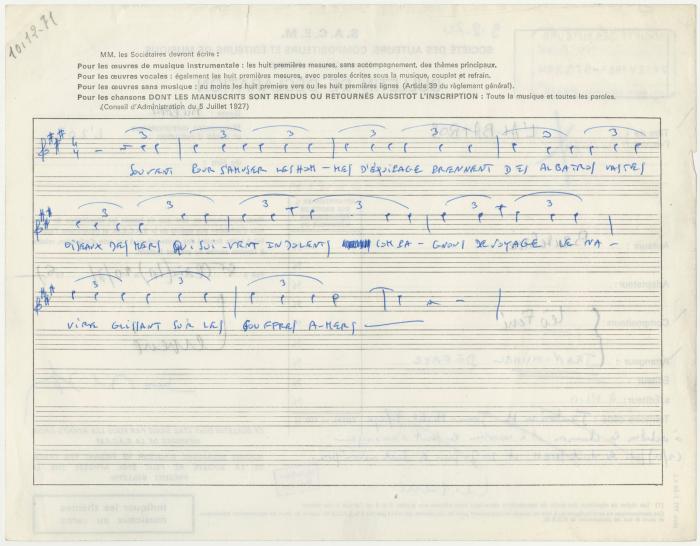 10.12.71
MM. les Sociétaires devront écrire :
Pour les œuvres de musique instrumentale : les huit premières mesures, sans accompagnement, des thèmes principaux.
Pour les œuvres vocales : également les huit premières mesures, avec paroles écrites sous la musique, couplet et refrain.
Pour les œuvres sans musique : au moins les huit premiers vers ou les huit premières lignes (Article 39 du règlement général).
Pour les chansons DONT LES MANUSCRITS SONT RENDUS OU RETOURNÉS AUSSITOT L'INSCRIPTION : Toute la musique et toutes les paroles.
(Conseil d'Administration du 5 Juillet 1927)
4 4 3 3 3 3 3 3
SOUVENT POUR S'AMUSER LES HOM - MES D'ÉQUIPAGE PRENNENT DES ALBATROS VASTES
3 3 3 3 3
OISEAUX DES MERS QUI SUI - VENT INDOLENTS COMPA - GNONS DE VOYAGE LE NA -
3 3 3
VIRE GLISSANT SUR LES GOUFFRES A-MERS